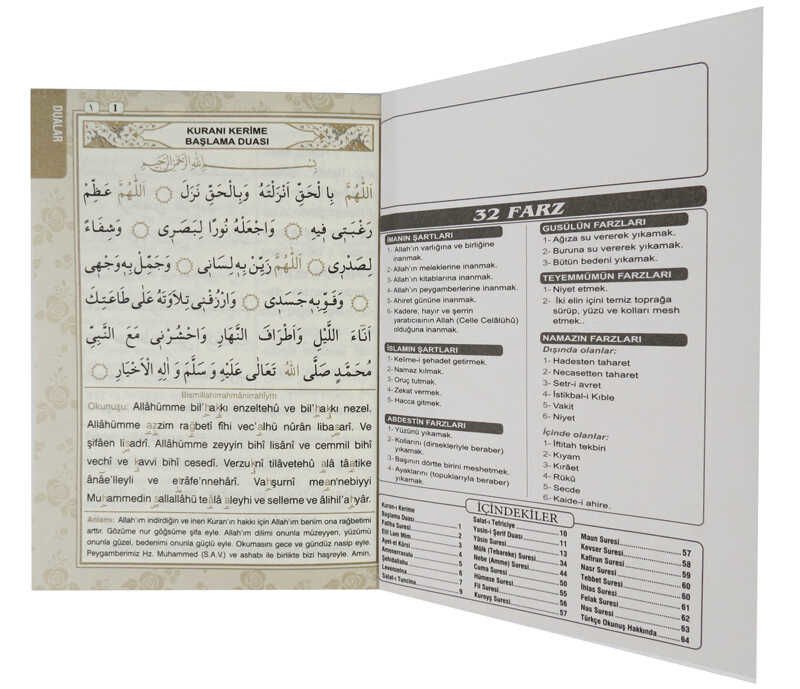 DUALAR
١ 1
KURANI KERİME
BAŞLAMA DUASI
بِسْمِ اللهِ الرَّحْمٰنِ الرَّحِيمِ
اَللّٰهُمَّ بِا لْحَقِّ اَنْزَلْتَهُ وَبِالْحَقِّ نَزَلَ اَللّٰهُمَّ عَظِّمْ
رَغْبَتٖى فٖيهِ وَاجْعَلْهُ نُورًا لِبَصَرٖى وَشِفَاءً
لِصَدْرٖى اَللّٰهُمَّ زَيِّنْ بِهٖ لِسَانٖى وَجَمِّلْ بِهٖ وَجْهٖى
وَقَوِّ بِهٖ جَسَدٖى وَارْزُقْنٖى تِلَاوَتَهُ عَلٰى طَاعَتِكَ
اٰنَاءَ اللَّيْلِ وَاَطْرَافَ النَّهَارِ وَاحْشُرْنٖى مَعَ النَّبِيِّ
مُحَمَّدٍ صَلَّى اللهُ تَعَالٰى عَلَيْهِ وَسَلَّمَ وَاٰلِهِ الْاَخْيَارِ
Bismillahirrahmânirrahîym
Okunuşu: Allâhümme bil'hakkı enzeltehü ve bil'hakkı nezel.
Allâhümme azzim rağbetî fîhi vec'alhü nûran libasarî. Ve
şifâen lisadrî. Allâhümme zeyyin bihî lisânî ve cemmil bihî
vechî ve kavvi bihî cesedî. Verzuknî tilâvetehû alâ tâatike
ânâe'lleyli ve etrâfe'nnehâri. Vahşurnî mean'nebiyyi
Muhammedin sallallâhü teâlâ aleyhi ve selleme ve âlihil'ahyâr.
Anlamı: Allah'ım indirdiğin ve inen Kuran'ın hakkı için Allah'ım benim ona rağbetimi
arttır. Gözüme nur göğsüme şifa eyle. Allah'ım dilimi onunla müzeyyen, yüzümü
onunla güzel, bedenimi onunla güçlü eyle. Okumasını gece ve gündüz nasip eyle.
Peygamberimiz Hz. Muhammed (S.A.V) ve ashabı ile birlikte bizi haşreyle. Amin.
32 FARZ
İMANIN ŞARTLARI
1- Allah'ın varlığına ve birliğine
inanmak.
2- Allah'ın meleklerine inanmak.
3- Allah'ın kitablarına inanmak.
4- Allah'ın peygamberlerine inanmak.
5- Ahiret gününe inanmak.
6- Kadere, hayır ve şerrin
yaratıcısının Allah (Celle Celâlühû)
olduğuna inanmak.
İSLAMIN ŞARTLARI
1- Kelime-i şehadet getirmek.
2- Namaz kılmak.
3- Oruç tutmak.
4- Zekat vermek.
5- Hacca gitmek.
ABDESTİN FARZLARI
1- Yüzünü yıkamak.
2- Kollarını (dirsekleriyle beraber)
yıkamak.
3- Başının dörtte birini meshetmek.
4- Ayaklarını (topuklarıyla beraber)
yıkamak.
GUSÜLÜN FARZLARI
1- Ağıza su vererek yıkamak.
2- Buruna su vererek yıkamak.
3- Bütün bedeni yıkamak.
TEYEMMÜMÜN FARZLARI
1- Niyet etmek.
2- İki elin içini temiz toprağa
sürüp, yüzü ve kolları mesh
etmek..
NAMAZIN FARZLARI
Dışında olanlar:
1- Hadesten taharet
2- Necasetten taharet
3- Setr-i avret
4- İstikbal-i Kıble
5- Vakit
6- Niyet
İçinde olanlar:
1- İftitah tekbiri
2- Kıyam
3- Kırâet
4- Rükû
5- Secde
6- Kaide-i ahire.
İÇİNDEKİLER
Kuran-ı Kerime
Başlama Duası 1
Fatiha Suresi 2
Elif Lam Mim 2
Ayet el Kürsi 4
Amenerrasulu 4
Şehidallahu 5
Levenzelna 7
Salat-ı Tuncina 9
Salat-ı Tefriciye 10
Yasin-i Şerif Duası 11
Yâsin Suresi 13
Mülk (Tebareke) Suresi 34
Nebe (Amme) Suresi 44
Cuma Suresi 50
Hümeze Suresi 55
Fil Suresi 56
Kureyş Suresi 57
Maun Suresi 57
Kevser Suresi 58
Kafirun Suresi 59
Nasr Suresi 60
Tebbet Suresi 60
İhlas Suresi 61
Felak Suresi 62
Nas Suresi 63
Türkçe Okunuş Hakkında 64